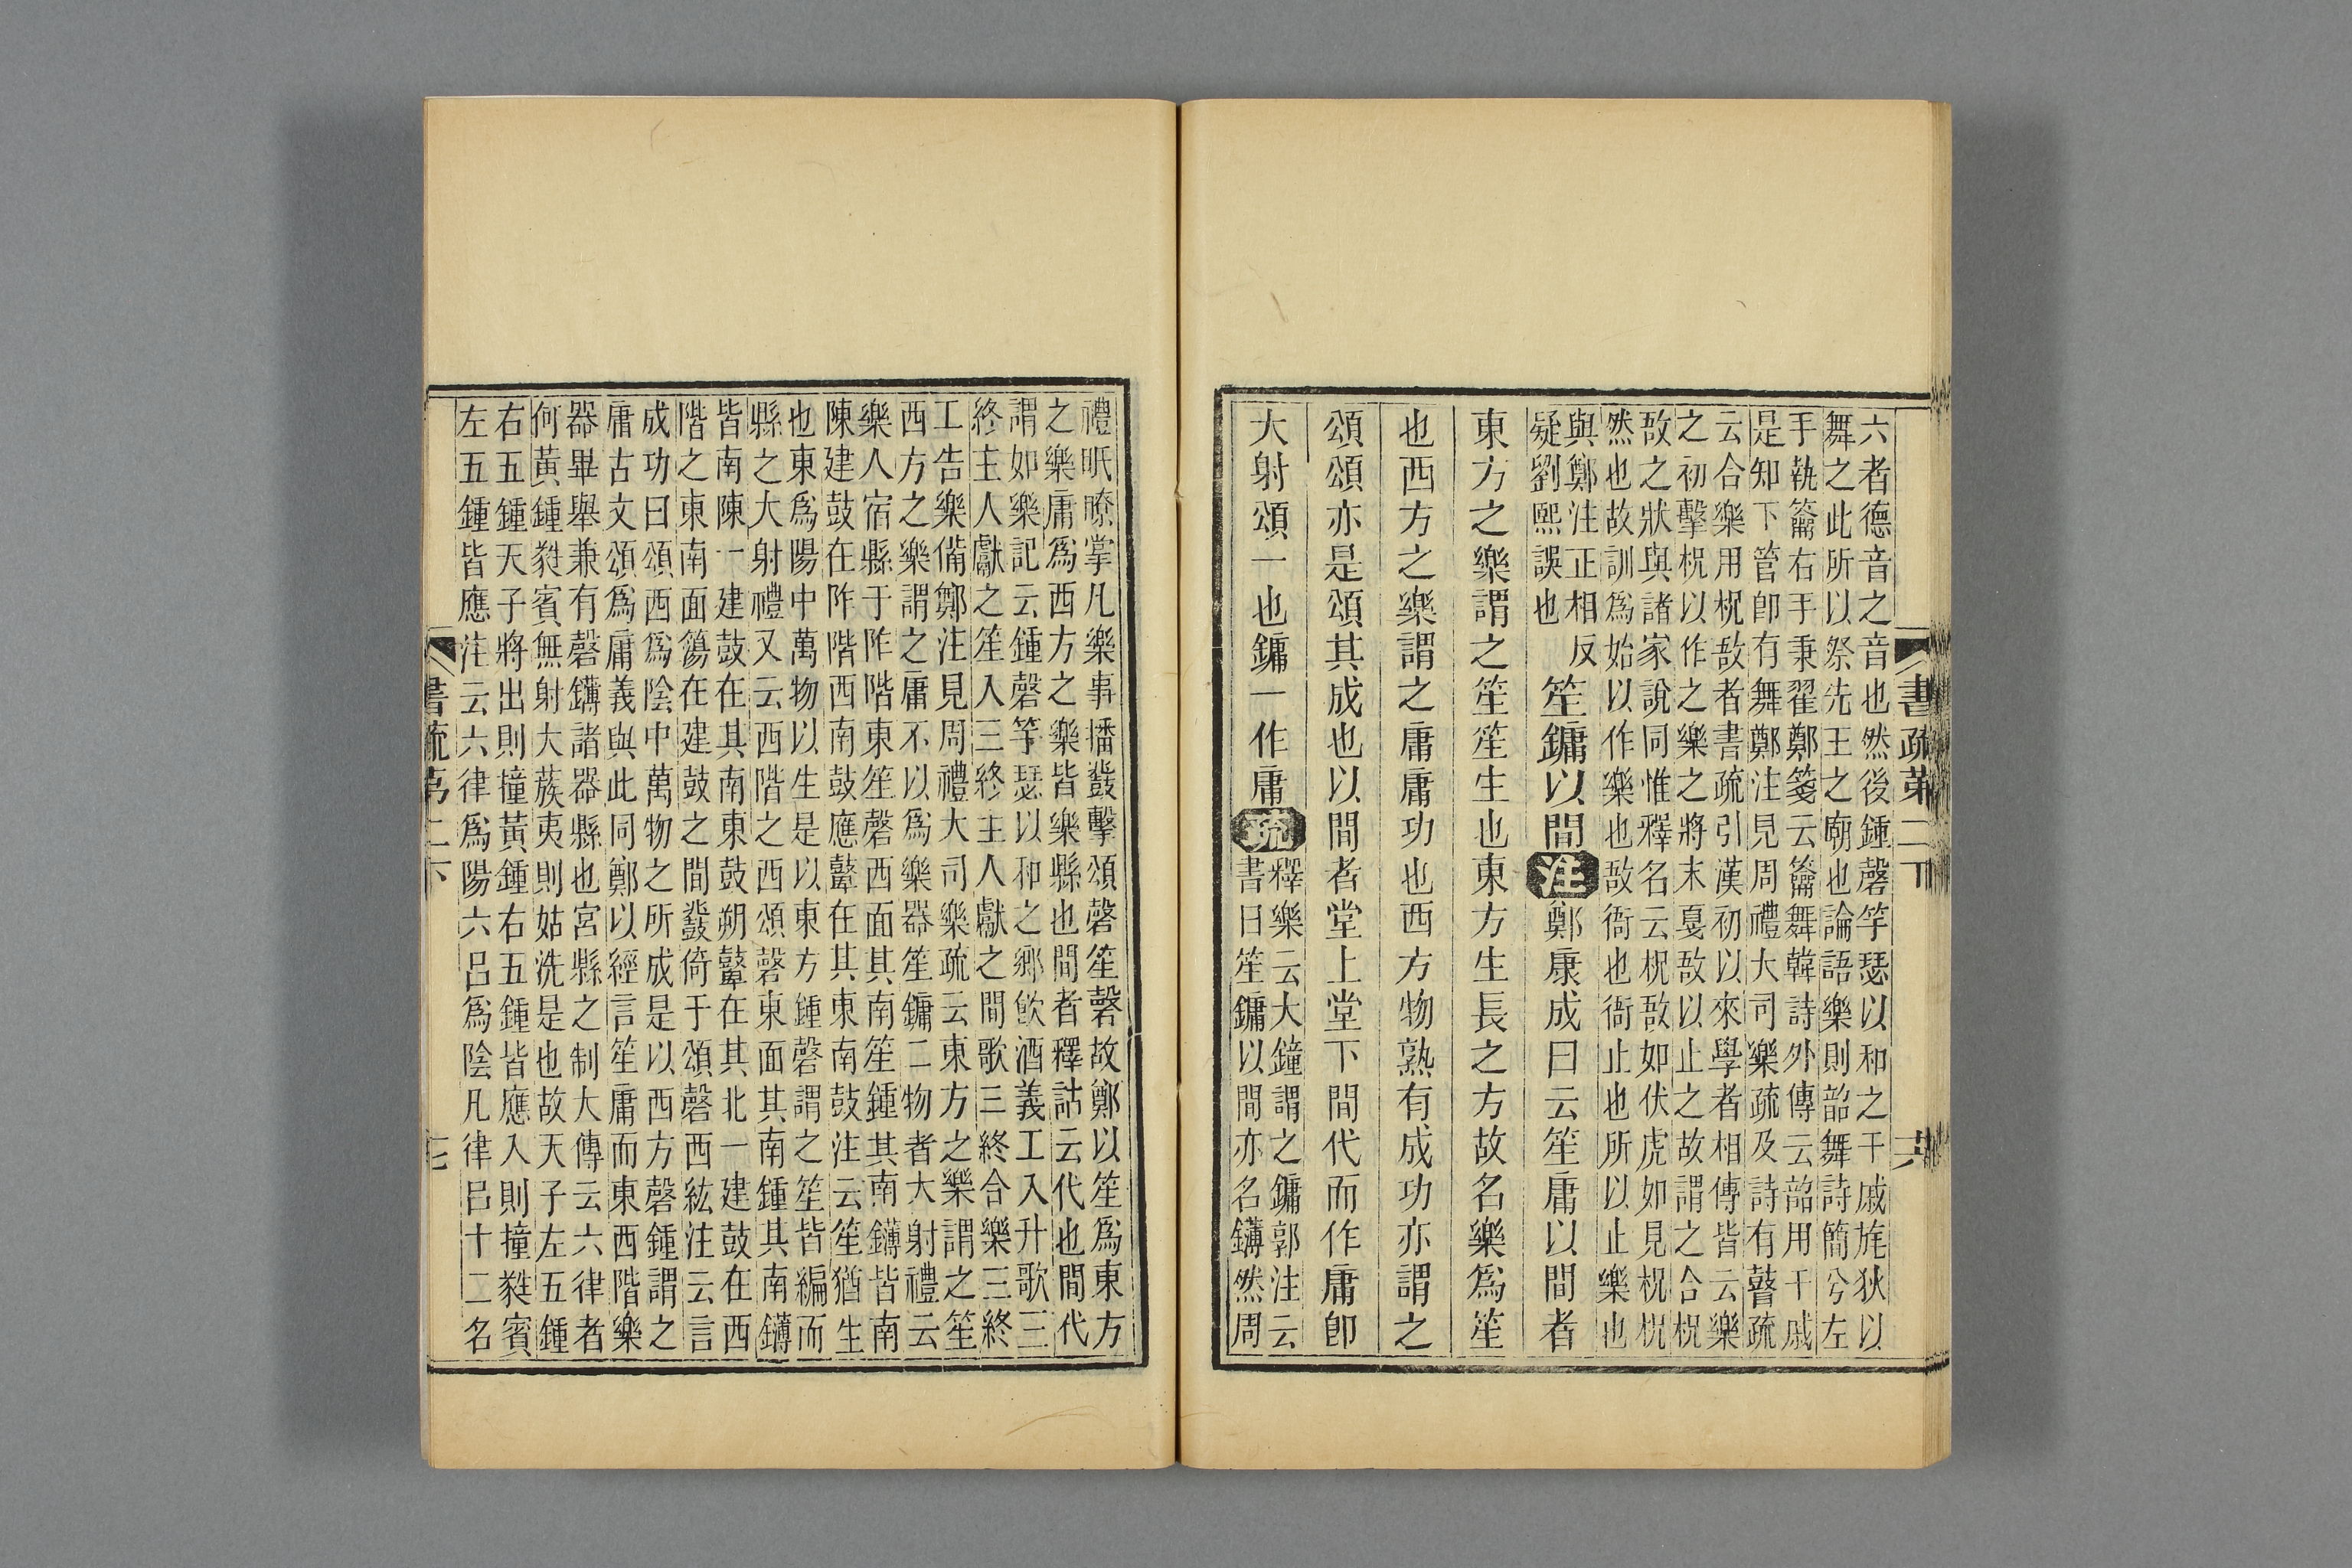 書疏第二下
六者德音之音也然後鍾磬竽瑟以和之干戚旄狄以
舞之此所以祭先王之廟也論語樂則韶舞詩簡兮左
手執籥右手秉翟鄭箋云籥舞韓詩外傳云韶用干戚
是知下管卽有舞鄭注見周禮大司樂疏及詩有瞽疏
云合樂用柷敔者書疏引漢初以來學者相傳皆云樂
之初擊柷以作之樂之將末戛敔以止之故謂之合柷
敔之狀與諸家說同惟釋名云柷敔如伏虎如見柷柷
然也故訓爲始以作樂也敔衙也衙止也所以止樂也
與鄭注正相反
疑劉熙誤也
笙鏞以間注鄭康成曰云笙庸以間者
東方之樂謂之笙笙生也東方生長之方故名樂爲笙
也西方之樂謂之庸庸功也西方物熟有成功亦謂之
頌頌亦是頌其成也以間者堂上堂下間代而作庸卽
大射頌一也鏞一作庸疏
釋樂云大鐘謂之鏞郭注云
書曰笙鏞以間亦名鏄然周
禮眡瞭掌凡樂事播鼗擊頌磬笙磬故鄭以笙爲東方
之樂庸爲西方之樂皆樂縣也間者釋詁云代也間代
謂如樂記云鍾磬竽瑟以和之鄉飲酒義工入升歌三
終主人獻之笙入三終主人獻之間歌三終合樂三終
工告樂備鄭注見周禮大司樂疏云東方之樂謂之笙
西方之樂謂之庸不以爲樂器笙鏞二物者大射禮云
樂人宿縣于阼階東笙磬西面其南笙鍾其南鏄皆南
陳建鼓在阼階西南鼓應鼙在其東南鼓注云笙猶生
也東爲陽中萬物以生是以東方鍾磬謂之笙皆編而
縣之大射禮又云西階之西頌磬東面其南鍾其南鏄
皆南陳一建鼓在其南東鼓朔鼙在其北一建鼓在西
階之東南面簜在建鼓之間鼗倚于頌磬西紘注云言
成功曰頌西爲陰中萬物之所成是以西方磬鍾謂之
庸古文頌爲庸義與此同鄭以經言笙庸而東西階樂
器畢舉兼有磬鏄諸器縣也宮縣之制大傳云六律者
何黃鍾蕤賓無射大蔟夷則姑洗是也故天子左五鍾
右五鍾天子將出則撞黃鍾右五鍾皆應入則撞蕤賓
左五鍾皆應注云六律爲陽六呂爲陰凡律呂十二名
書疏第二下